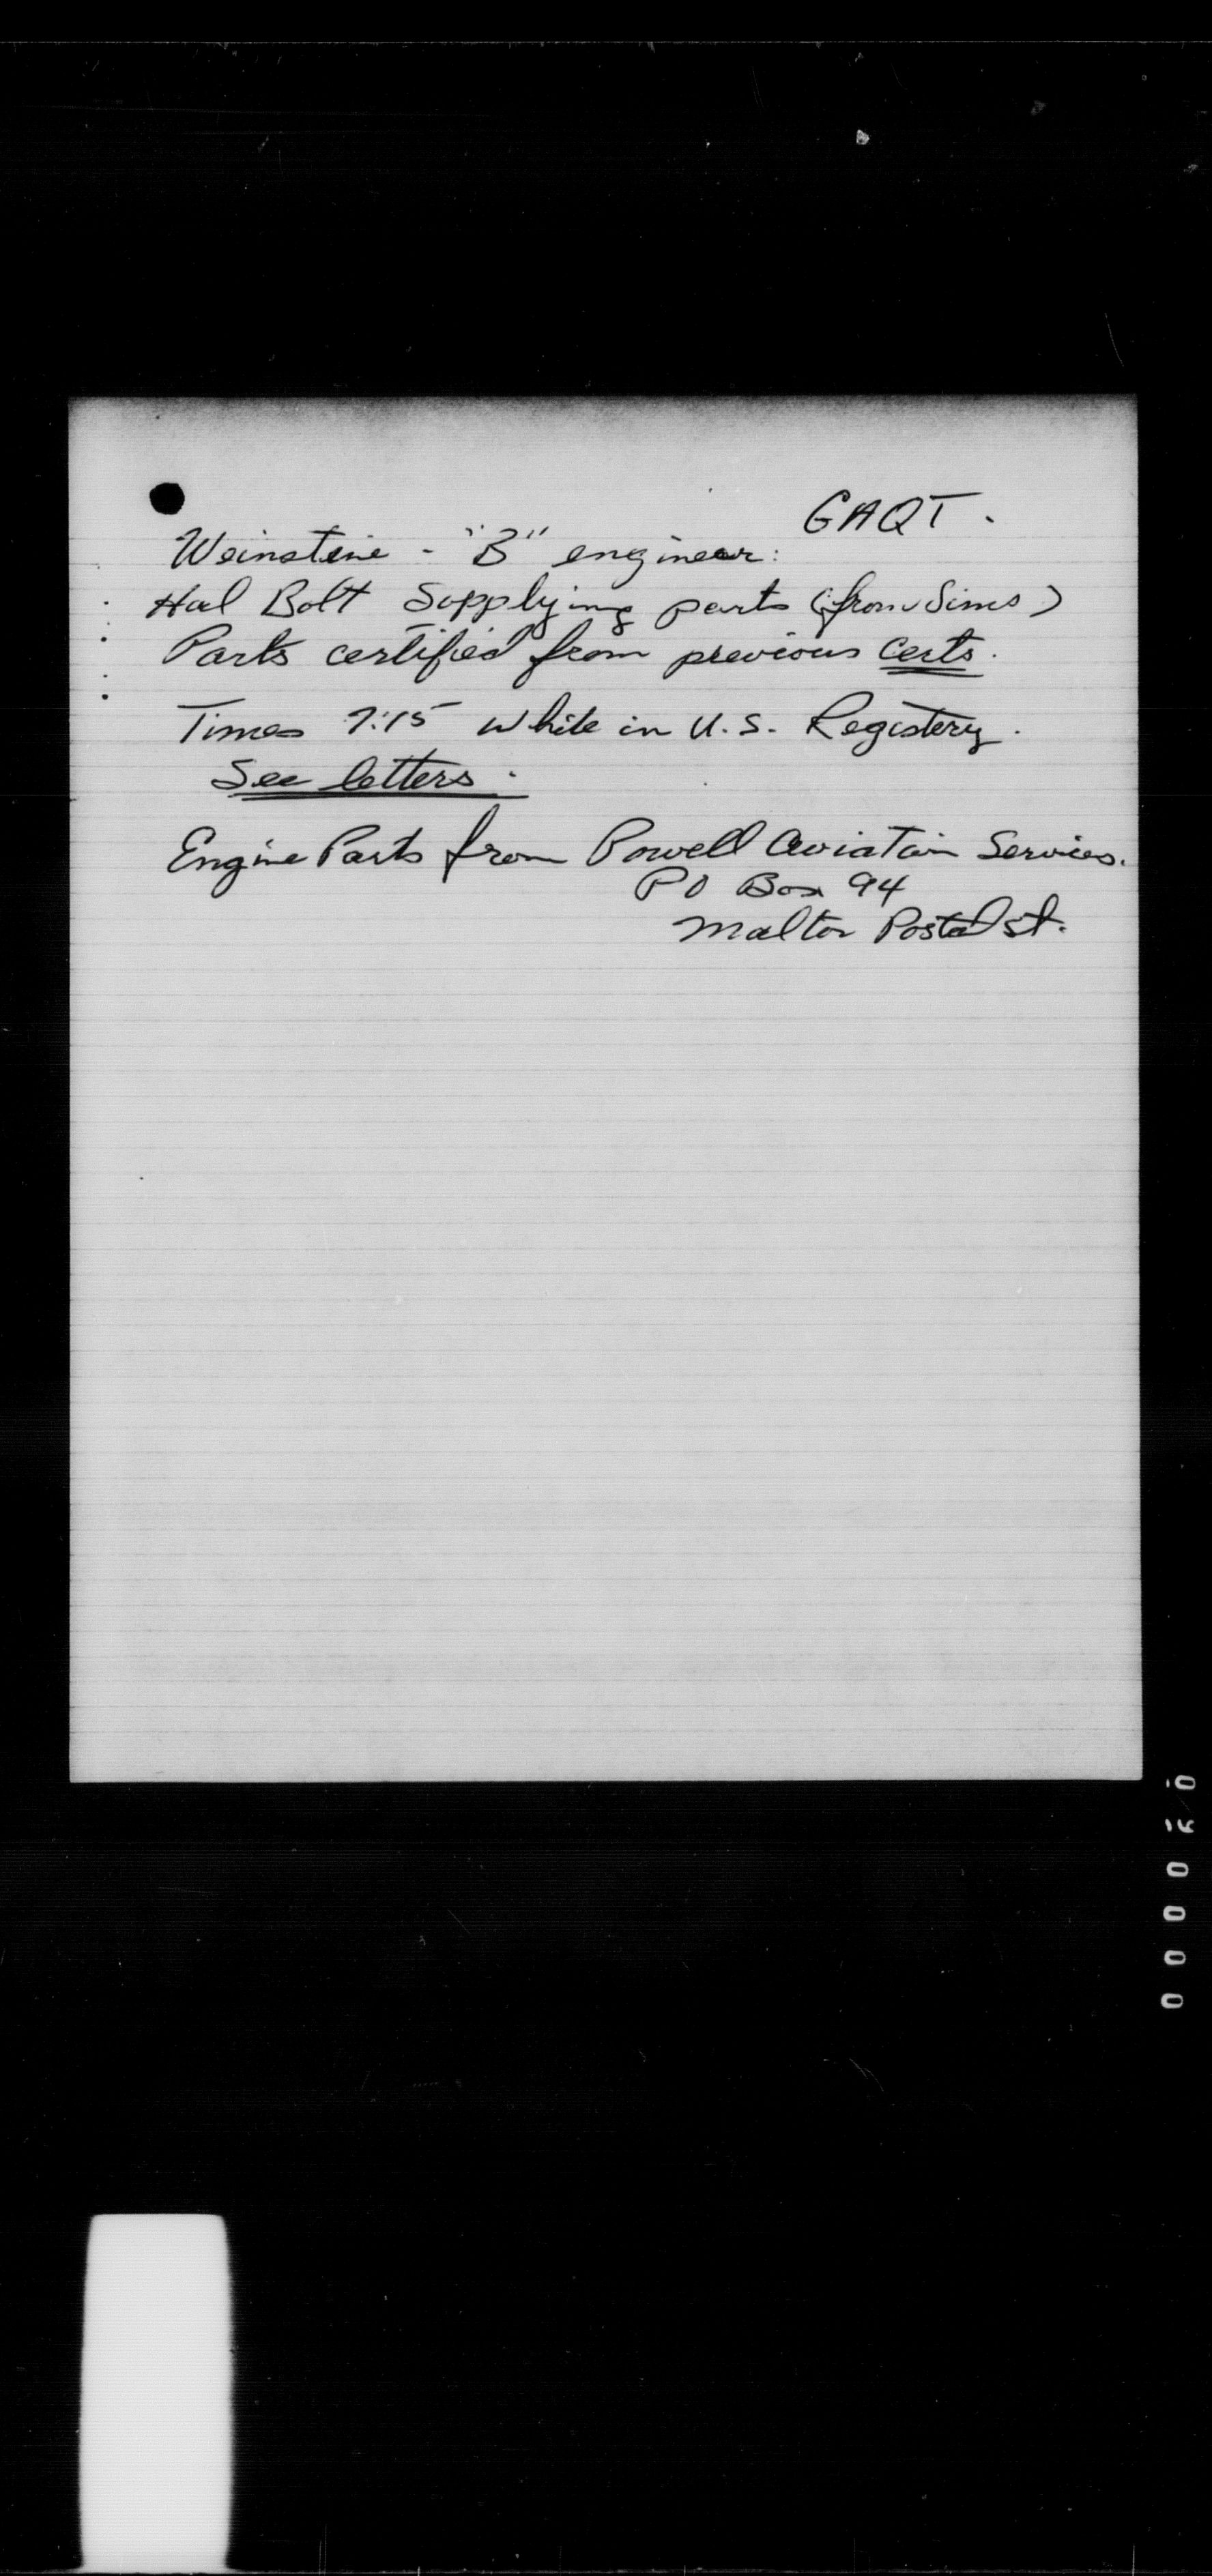 GAQT.
Weinsteine - "B" engineer:
Hal Bolt Supplying parts (from Sims)
Parts certified from previous certs.
Times 7:15 while in U.S. Registery.
See letters.
Engine Parts from Powell Aviation Services.
PO Box 94
Malton Postal St.
000060